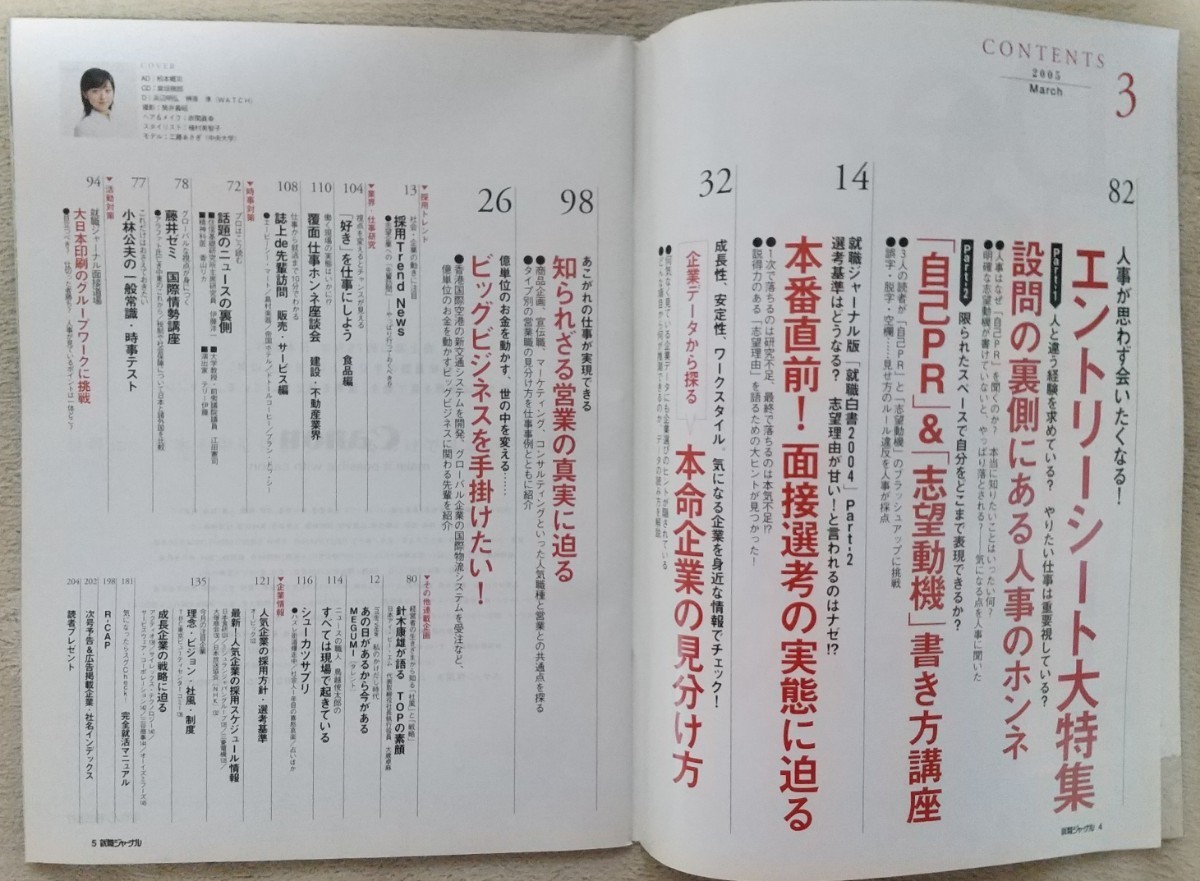 CONTENTS
2005
March
3
82
人事が思わず会いたくなる！
エントリーシート大特集
Part-1 人と違う経験を求めている？ やりたい仕事は重要視している？
設問の裏側にある人事のホンネ
●人事はなぜ「自己PR」を聞くのか？ 本当に知りたいことはいったい何？
●明確な志望動機が書けていないと、やっぱり落とされる？――気になる点を人事に聞いた
Part-2 限られたスペースで自分をどこまで表現できるか？
「自己PR」&「志望動機」書き方講座
●3人の読者が「自己PR」と「志望動機」のブラッシュアップに挑戦
●誤字・脱字・空欄……見せ方のルール違反を人事が採点
14
就職ジャーナル版「就職白書2004」Part-2
選考基準はどうなる？ 志望理由が甘い！と言われるのはナゼ!?
本番直前！面接選考の実態に迫る
●1次で落ちるのは研究不足、最終で落ちるのは本気不足!?
●説得力のある「志望理由」を語るための大ヒントが見つかった！
32
成長性、安定性、ワークスタイル。気になる企業を身近な情報でチェック！
企業データから探る
本命企業の見分け方
就職ジャーナル 4
COVER
撮影：筒井義昭
98
あこがれの仕事が実現できる
知られざる営業の真実に迫る
●商品企画、宣伝職、マーケティング、コンサルティングといった人気職種と営業との共通点を探る
●タイプ別の営業職の見分け方を仕事事例とともに紹介
26
億単位のお金を動かす、世の中を変える……
ビッグビジネスを手掛けたい！
●香港国際空港の新交通システムを開発、グローバル企業の国際物流システムを受注など、
億単位のお金を動かすビッグビジネスに関わる先輩を紹介
▼採用トレンド
13
社会・企業の動きに注目
採用Trend News
▼業界・仕事研究
104
視点を変えるとチャンスが見える
「好き」を仕事にしよう 食品編
110
働く現場の実態はいかに!?
覆面 仕事ホンネ座談会 建設・不動産業界
108
仕事から就活まで10分でわかる
誌上de先輩訪問 販売・サービス編
▼時事対策
72
プロはこう読む
話題のニュースの裏側
■精神科医 香山リカ
■演出家 テリー伊藤
78
グローバルな視点が身につく
藤井ゼミ 国際情勢講座
77
これだけはおさえておきたい
小林公夫の一般常識・時事テスト
▼活動対策
94
就職ジャーナル面接道場
大日本印刷のグループワークに挑戦
▼その他連載企画
80
経営者の生きざまから知る「社風」と「戦略」
針木康雄が語る TOPの素顔
12
あの日があるから今がある
MEGUMI
114
ニュースの職人 鳥越俊太郎の
すべては現場で起きている
116
シューカツサプリ
▼企業情報
121
人気企業の採用方針・選考基準
最新！人気企業の採用スケジュール情報
135
今月の注目企業
理念・ビジョン・社風・制度
成長企業の戦略に迫る
181
気になったらスグCheck！ 完全就活マニュアル
198
R-CAP
202
次号予告&広告掲載企業・社名インデックス
204
読者プレゼント
5 就職ジャーナル